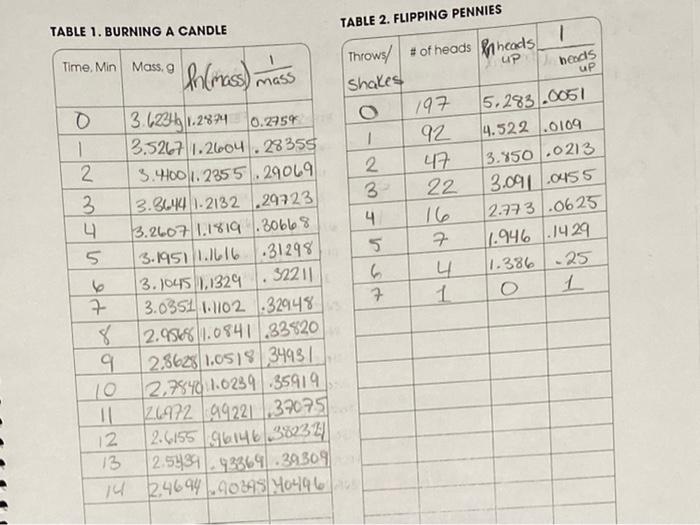 TABLE 1. BURNING A CANDLE
Time, Min Mass, g ln(mass) 1/mass
0 3.6234g 1.2874 0.2759
1 3.5267 1.2604 .28355
2 3.4400 1.2355 .29069
3 3.3644 1.2132 .29723
4 3.2607 1.1819 .30668
5 3.1951 1.1616 .31298
6 3.1045 1.1329 .32211
7 3.0351 1.1102 .32948
8 2.9568 1.0841 .33820
9 2.8628 1.0518 .34931
10 2.7840 1.0239 .35919
11 2.6972 .99221 .37075
12 2.6155 .96146 .38233
13 2.5439 .93369 .39309
14 2.4694 .90398 .40496
TABLE 2. FLIPPING PENNIES
Throws/ Shakes # of heads ln heads up 1/heads up
0 197 5.283 .0051
1 92 4.522 .0109
2 47 3.850 .0213
3 22 3.091 .0455
4 16 2.773 .0625
5 7 1.946 .1429
6 4 1.386 .25
7 1 0 1